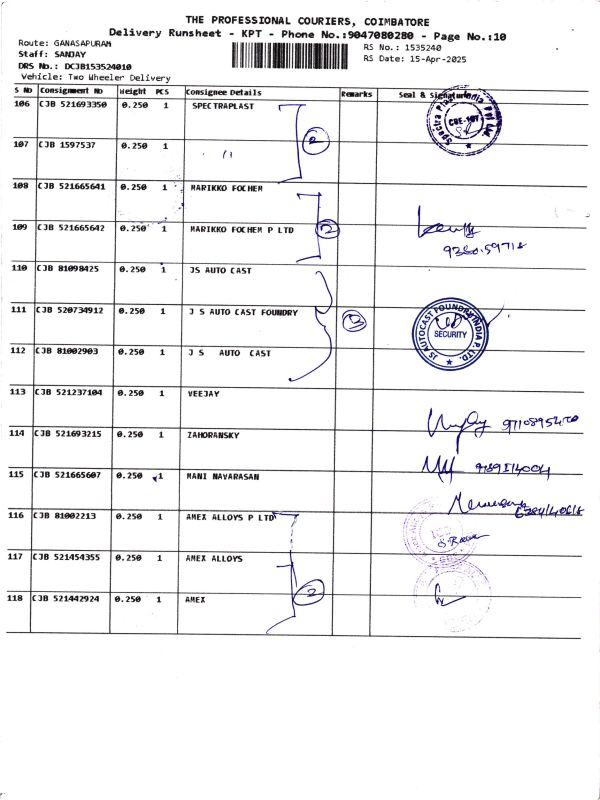 THE PROFESSIONAL COURIERS, COIMBATORE
Delivery Runsheet - KPT - Phone No.:9047080280 - Page No.:10
Route: GANASAPURAM
RS No.: 1535240
Staff: SANJAY
RS Date: 15-Apr-2025
DRS No.: DCJB153524010
Vehicle: Two Wheeler Delivery
S No Consignment No Weight PCS Consignee Details Remarks Seal & Signature
106 CJB 521693350 0.250 1 SPECTRAPLAST
Spectra Plast India Pvt Ltd
CBE-107
107 CJB 1597537 0.250 1 "
2
108 CJB 521665641 0.250 1 MARIKKO FOCHEM
109 CJB 521665642 0.250 1 MARIKKO FOCHEM P LTD 2
110 CJB 81098425 0.250 1 JS AUTO CAST
111 CJB 520734912 0.250 1 J S AUTO CAST FOUNDRY 3
JS AUTOCAST FOUNDRY INDIA P. LTD.
SECURITY
112 CJB 81002903 0.250 1 J S AUTO CAST
113 CJB 521237104 0.250 1 VEEJAY
114 CJB 521693215 0.250 1 ZAHORANSKY
115 CJB 521665607 0.250 1 MANI NAVARASAN
116 CJB 81002213 0.250 1 AMEX ALLOYS P LTD
117 CJB 521454355 0.250 1 AMEX ALLOYS
118 CJB 521442924 0.250 1 AMEX 2